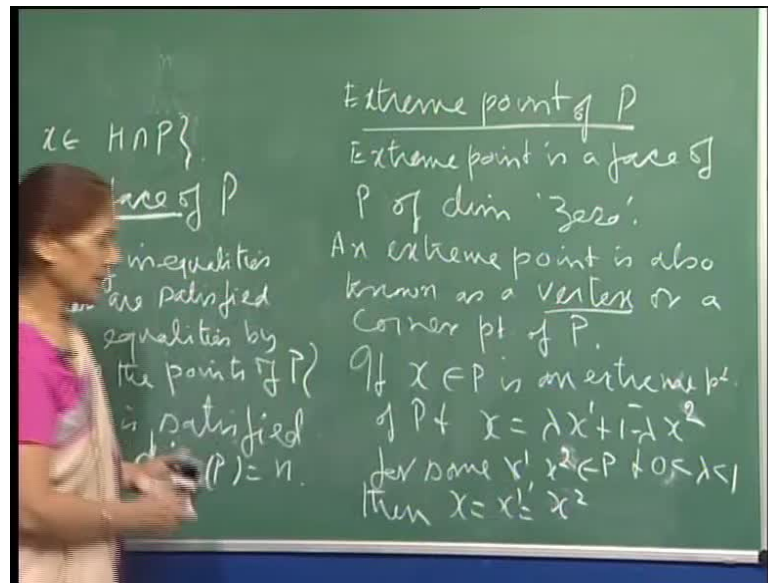 x ∈ H∩P}.
face of P
inequalities
are satisfied
equalities by
the points of P}
is satisfied
(P) = n.
Extreme point of P
Extreme point is a face of
P of dim 'Zero'.
An extreme point is also
known as a vertex or a
Corner pt of P.
If x ∈ P is an extreme pt.
of P & x = λx¹ + 1-λ x²
for some x¹, x² ∈ P & 0 < λ < 1
then x = x¹ = x²